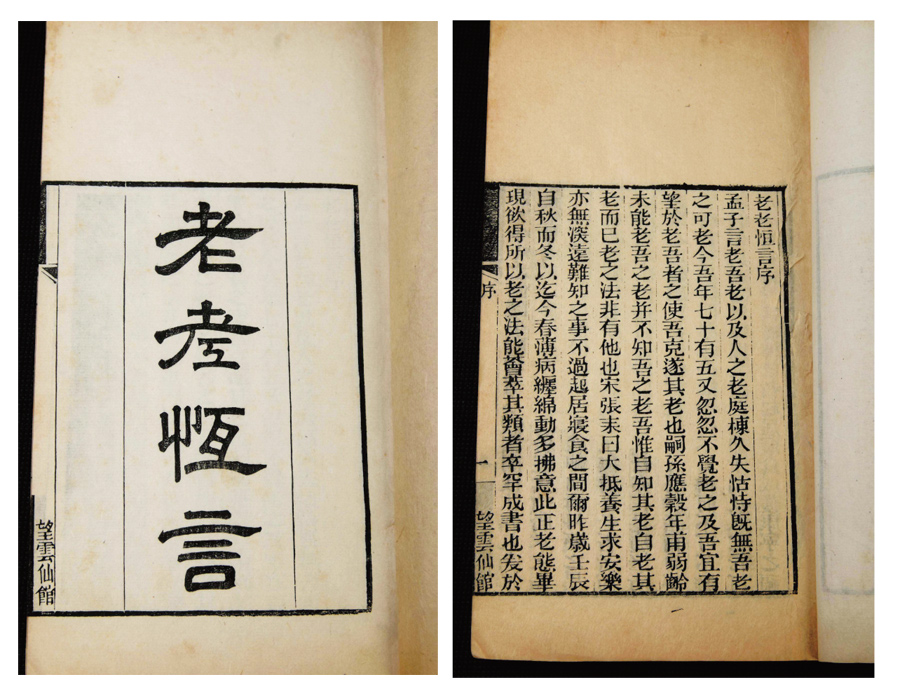 老老恆言
望雲仙館
老老恒言序
孟子言老吾老以及人之老庭棟久失怙恃既無吾老
之可老今吾年七十有五又忽忽不覺老之及吾宜有
望於老吾者之使吾克遂其老也嗣孫應穀年甫弱齡
未能老吾之老并不知吾之老吾惟自知其老自老其
老而已老之法非有他也宋張耒曰大抵養生求安樂
亦無深遠難知之事不過起居寢食之間爾昨歲壬辰
自秋而冬以迄今春薄病纏綿動多拂意此正老態畢
現欲得所以老之法能薈萃其類者卒罕成書也爰於
序
一
望雲仙館